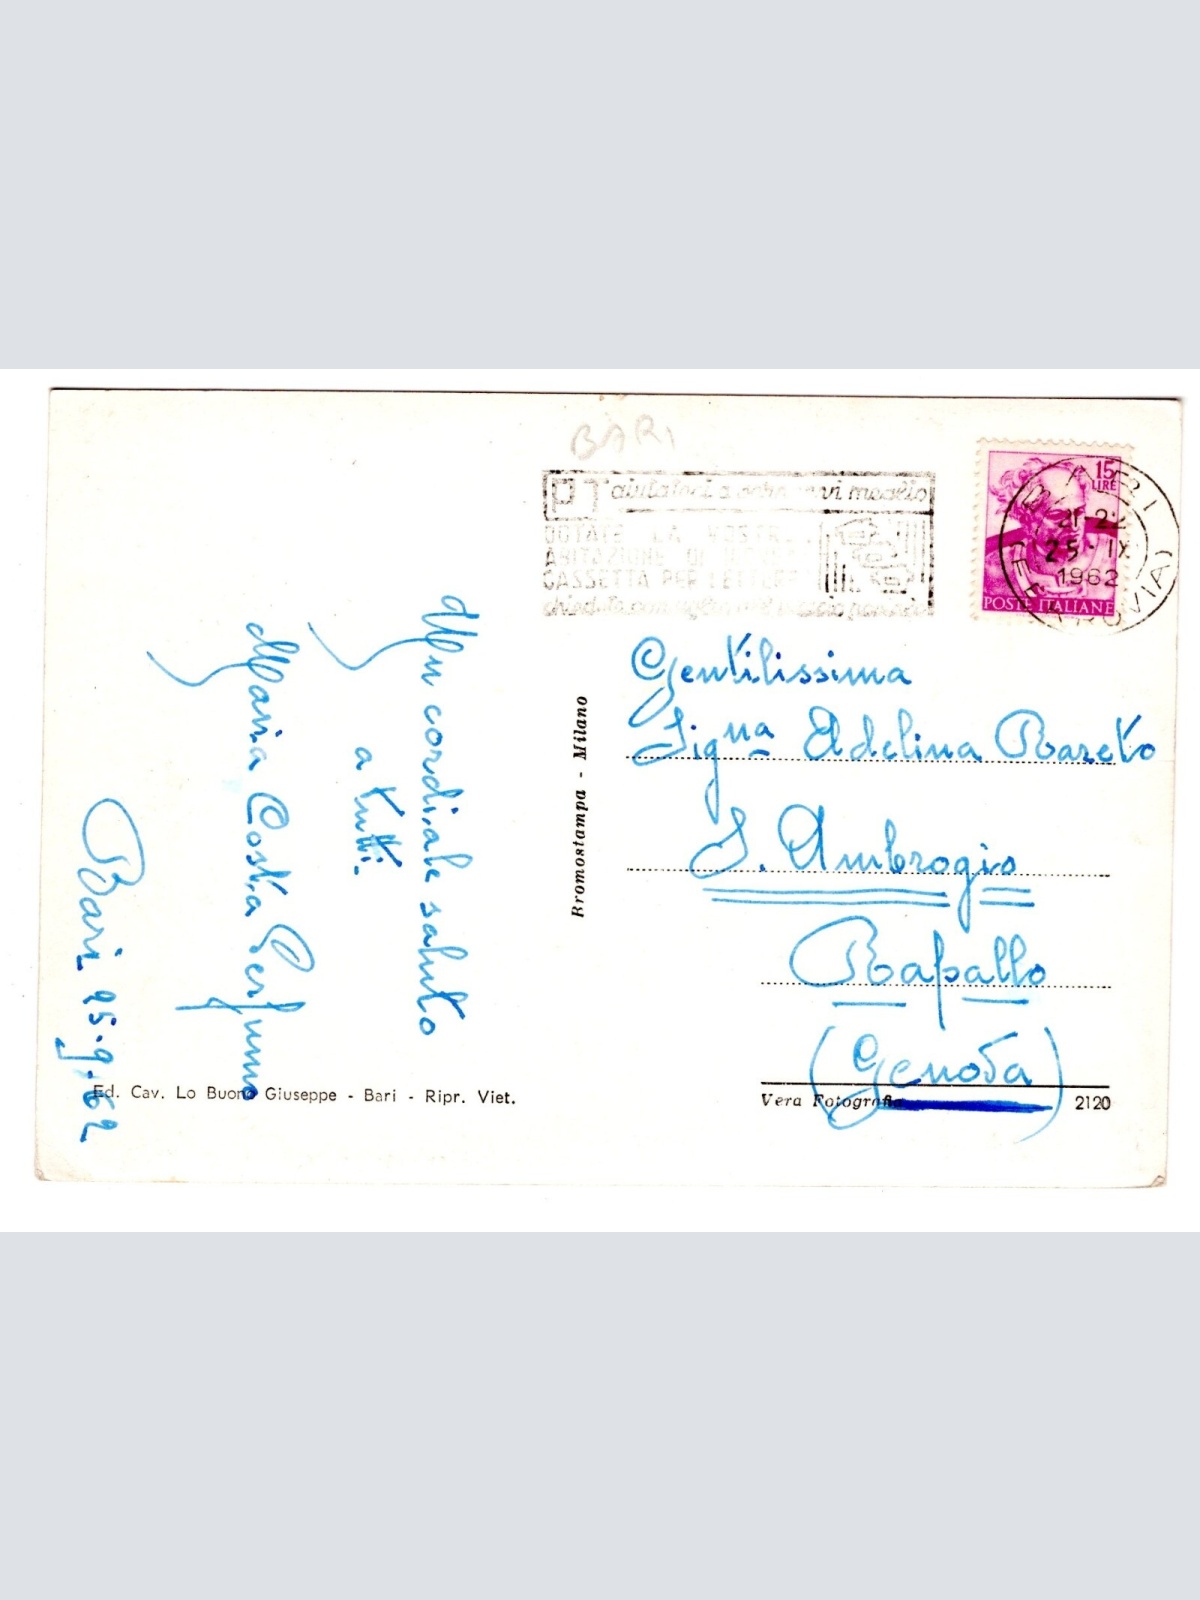 BARI
aiutateci a servirvi meglio
DOTATE LA VOSTRA
ABITAZIONE DI
CASSETTA PER LETTERE
15
LIRE
POSTE ITALIANE
BARI
21-22
25·IX
1962
FERROVIA)
Gentilissima
Sigⁿᵃ Adelina Bareto
S. Ambrogio
Rapallo
(Genova)
Vera Fotografia 2120
Bromostampa - Milano
Un cordiale saluto
a tutti.
Maria Costa Perfumo
Bari 25-9-62
Ed. Cav. Lo Buono Giuseppe - Bari - Ripr. Viet.